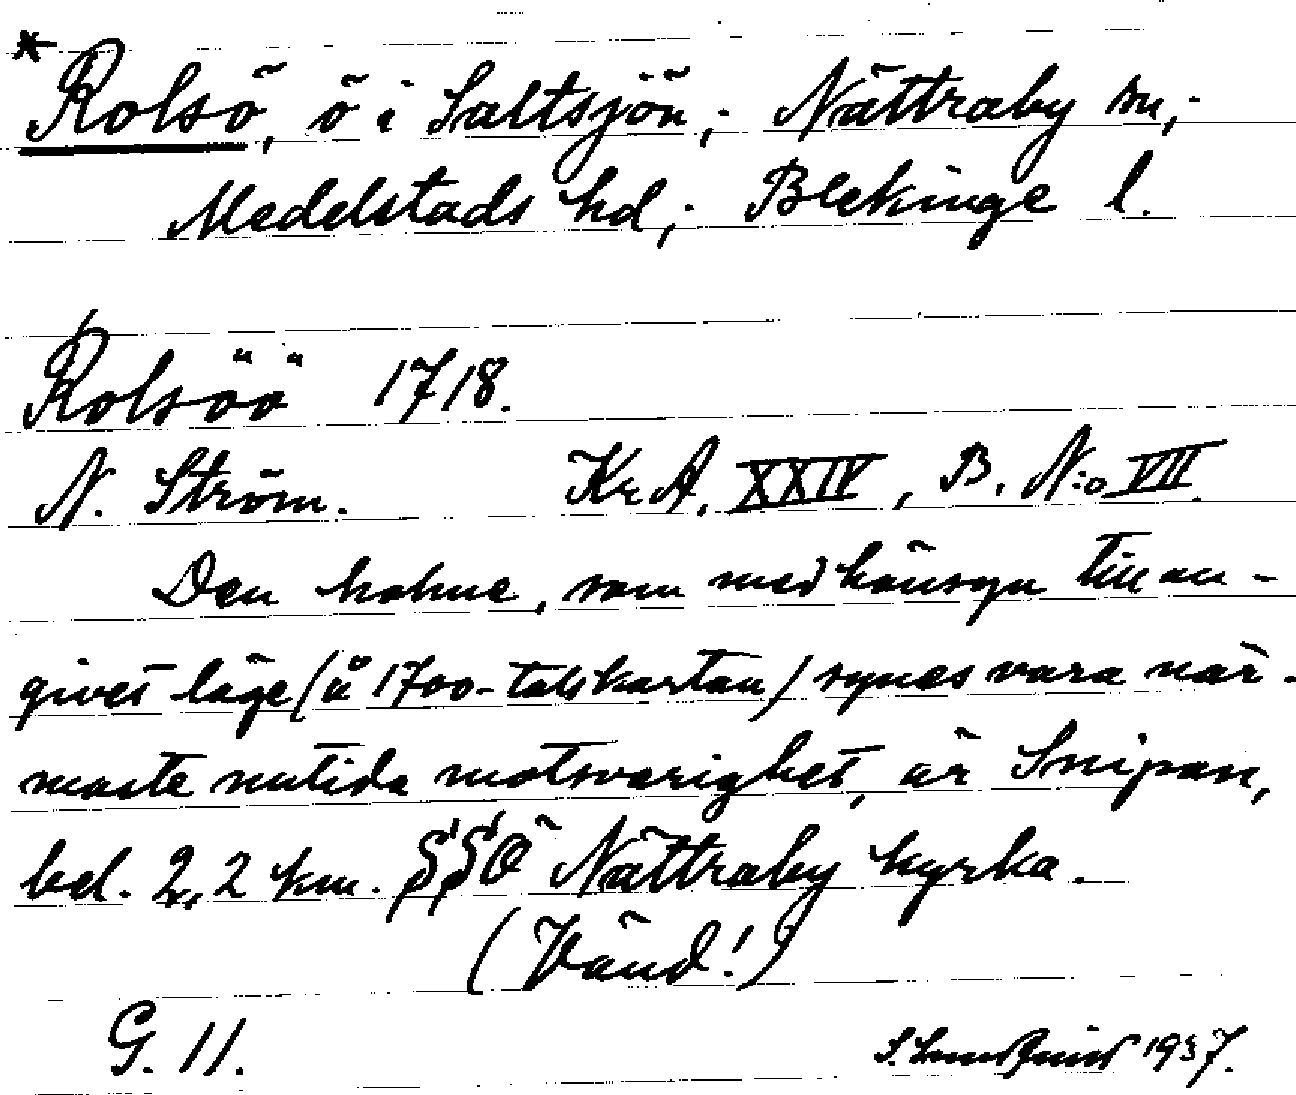 * Rolsö, ö i Saltsjön,; Nättraby sn,;
Medelstads hd,; Blekinge l.
Rolsöö 1718.
N. Ström. Kr. A. XXIV, B. N:o VII.
Den holme, som med hänsyn till an-
givet läge (å 1700-talskartan) synes vara när-
maste nutida motsvarighet, är Snipan,
bel. 2,2 km. SSÖ Nättraby kyrka.
(Vänd!)
G. 11. 1937.